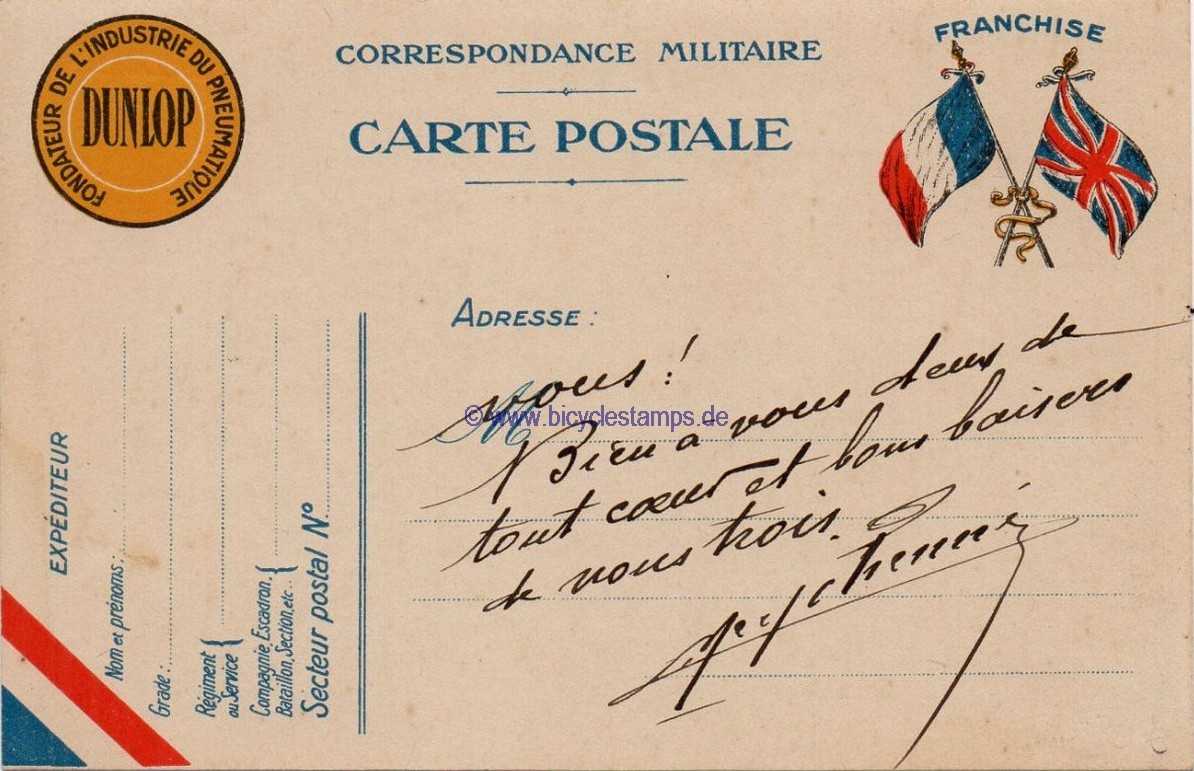 FONDATEUR DE L'INDUSTRIE DU PNEUMATIQUE
DUNLOP
CORRESPONDANCE MILITAIRE
CARTE POSTALE
FRANCHISE
ADRESSE :
M
vous !
© www.bicyclestamps.de
Bien à vous deux de
tout cœur et bons baisers
de nous trois.
EXPÉDITEUR
Nom et prénoms :
Grade :
Régiment
ou Service {
Compagnie, Escadron, }
Bataillon, Section, etc... {
Secteur postal N°